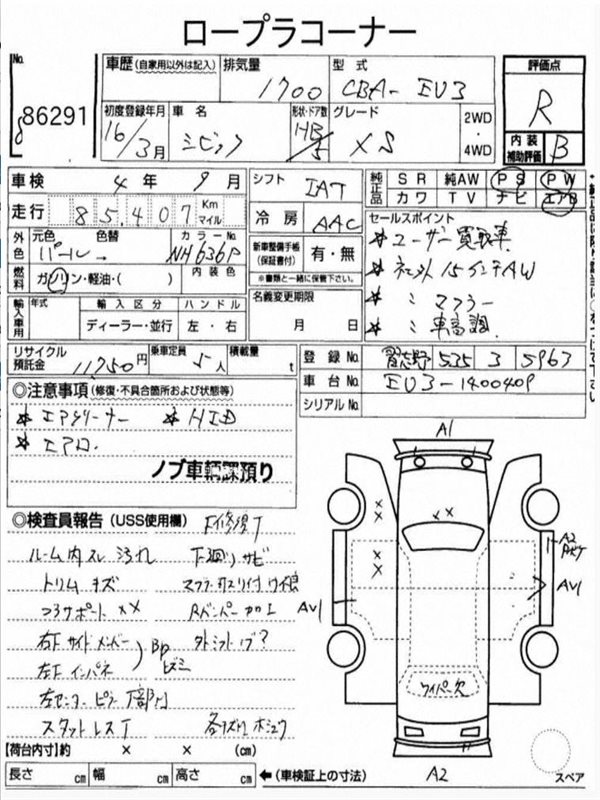 ロープラコーナー
No. 86291
車歴 (自家用以外は記入) 排気量 1700 型式 CBA-EU3
評価点 R
初度登録年月 16/3月 車名 シビック 形状・ドア数 HB/5 グレード XS 2WD・4WD
内装補助評価 B
車検 4年9月 シフト IAT 純正品 SR 純AW PS PW
カワ TV ナビ エアB
走行 85,407 Km マイル 冷房 AAC
セールスポイント
外色 元色 色替 カラーNo. パール NH636P
新車整備手帳(保証書付) 有・無
※書類と一緒に保管下さい。
* ユーザー買取車
* 社外15インチAW
* 〃 マフラー
* 〃 車高調
燃料 ガソリン・軽油・( ) 内装色
名義変更期限 月 日
輸入車用 年式 輸入区分 ハンドル
ディーラー・並行 左・右
リサイクル預託金 11750円 乗車定員 5人 積載量 t
登録No. 習志野 535 3 5963
車台No. EU3-1400409
シリアルNo.
◎注意事項 (修復・不具合箇所および状態等)
* エアクリーナー * HID
* エアロ
ノブ車輌課預り
◎検査員報告 (USS使用欄) F修復T
ルーム内スレ汚れ 下廻りサビ
トリムキズ
コアサポートXX Rバンパー加工
右F サイドメンバー
左F インパネ
Bp ヒズミ
スタットレスT
A1
XX
A2
AV1
AV1
ワイパー欠
A2
スペア
【荷台内寸】約 × × (cm)
長さ cm 幅 cm 高さ cm ←(車検証上の寸法)